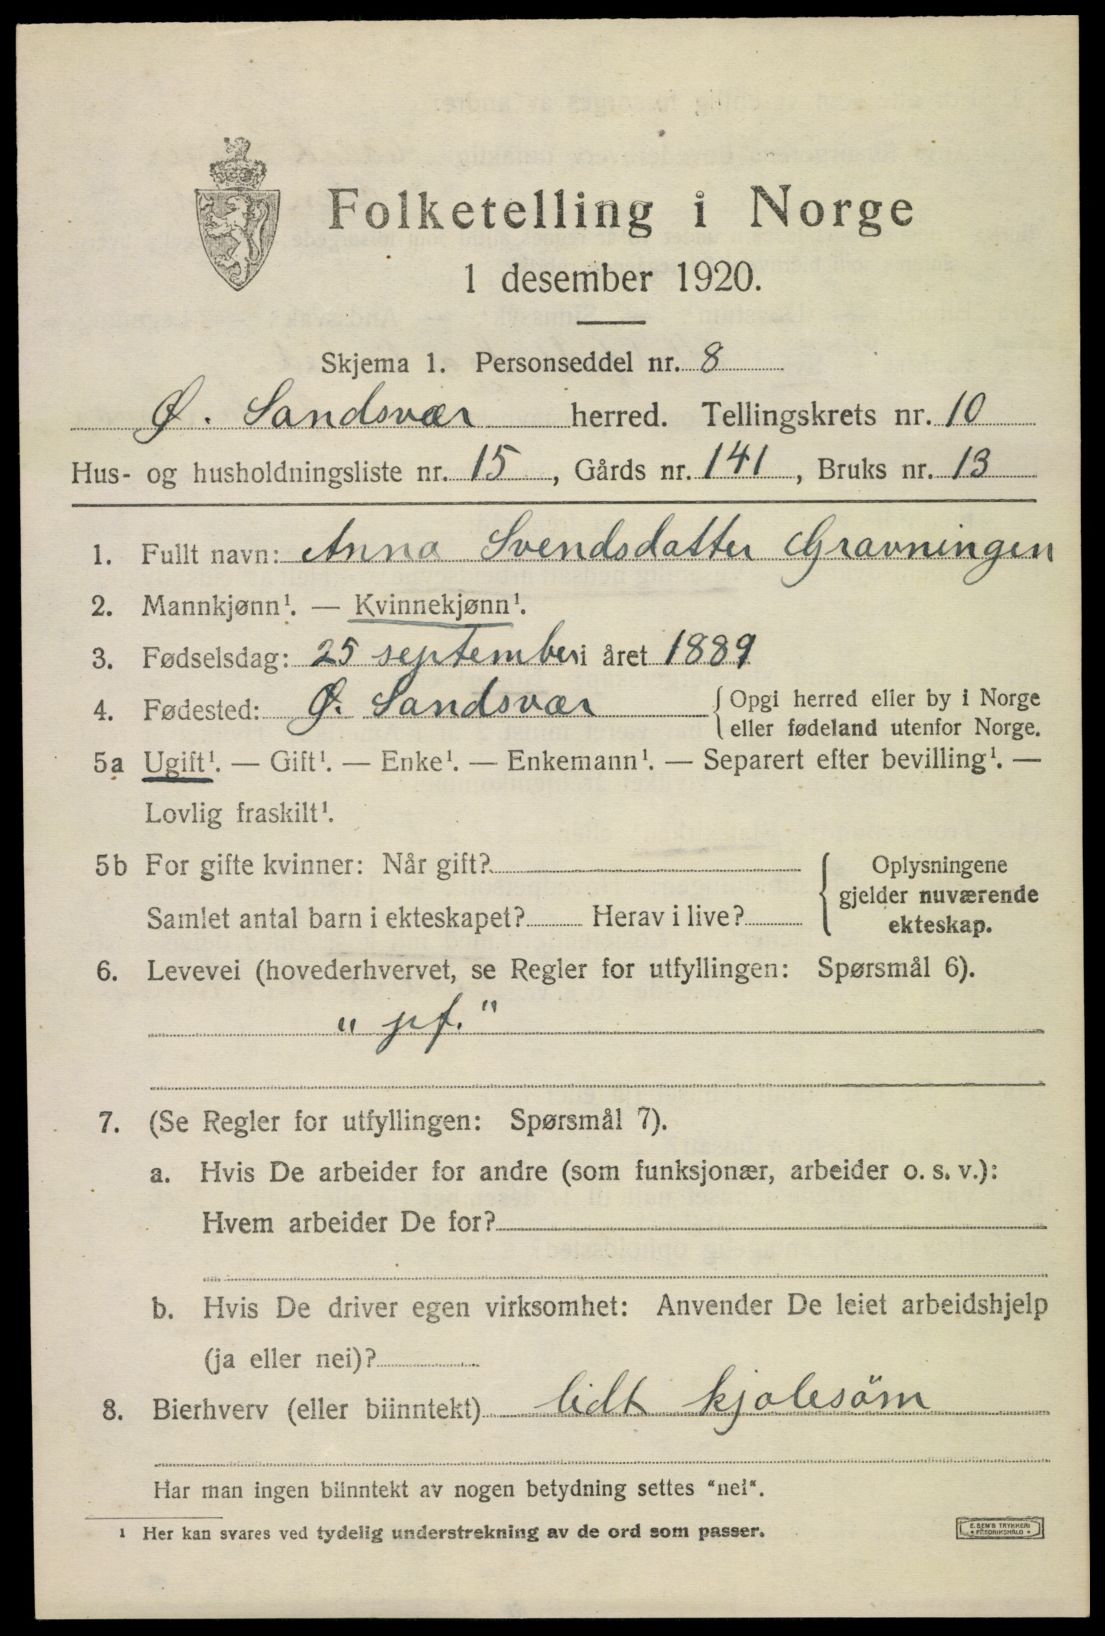 Folketelling i Norge
1 desember 1920.
Skjema 1. Personseddel nr. 8
Ø. Sandsvær herred. Tellingskrets nr. 10
Hus- og husholdningsliste nr. 15, Gårds nr. 141, Bruks nr. 13
1. Fullt navn: Anna Svendsdatter Gravningen
2. Mannkjønn¹. — Kvinnekjønn¹.
3. Fødselsdag: 25 september i året 1889
4. Fødested: Ø. Sandsvær { Opgi herred eller by i Norge
eller fødeland utenfor Norge.
5a Ugift¹. — Gift¹. — Enke¹. — Enkemann¹. — Separert efter bevilling¹. —
Lovlig fraskilt¹.
5b For gifte kvinner: Når gift? { Oplysningene
gjelder nuværende
Samlet antal barn i ekteskapet? Herav i live? ekteskap.
6. Levevei (hovederhvervet, se Regler for utfyllingen: Spørsmål 6).
" pf. "
7. (Se Regler for utfyllingen: Spørsmål 7).
a. Hvis De arbeider for andre (som funksjonær, arbeider o. s. v.):
Hvem arbeider De for?
b. Hvis De driver egen virksomhet: Anvender De leiet arbeidshjelp
(ja eller nei)?
8. Bierhverv (eller biinntekt) lidt kjolesöm
Har man ingen biinntekt av nogen betydning settes "nei".
¹ Her kan svares ved tydelig understrekning av de ord som passer.
E. SEM'S TRYKKERI
FREDRIKSHALD